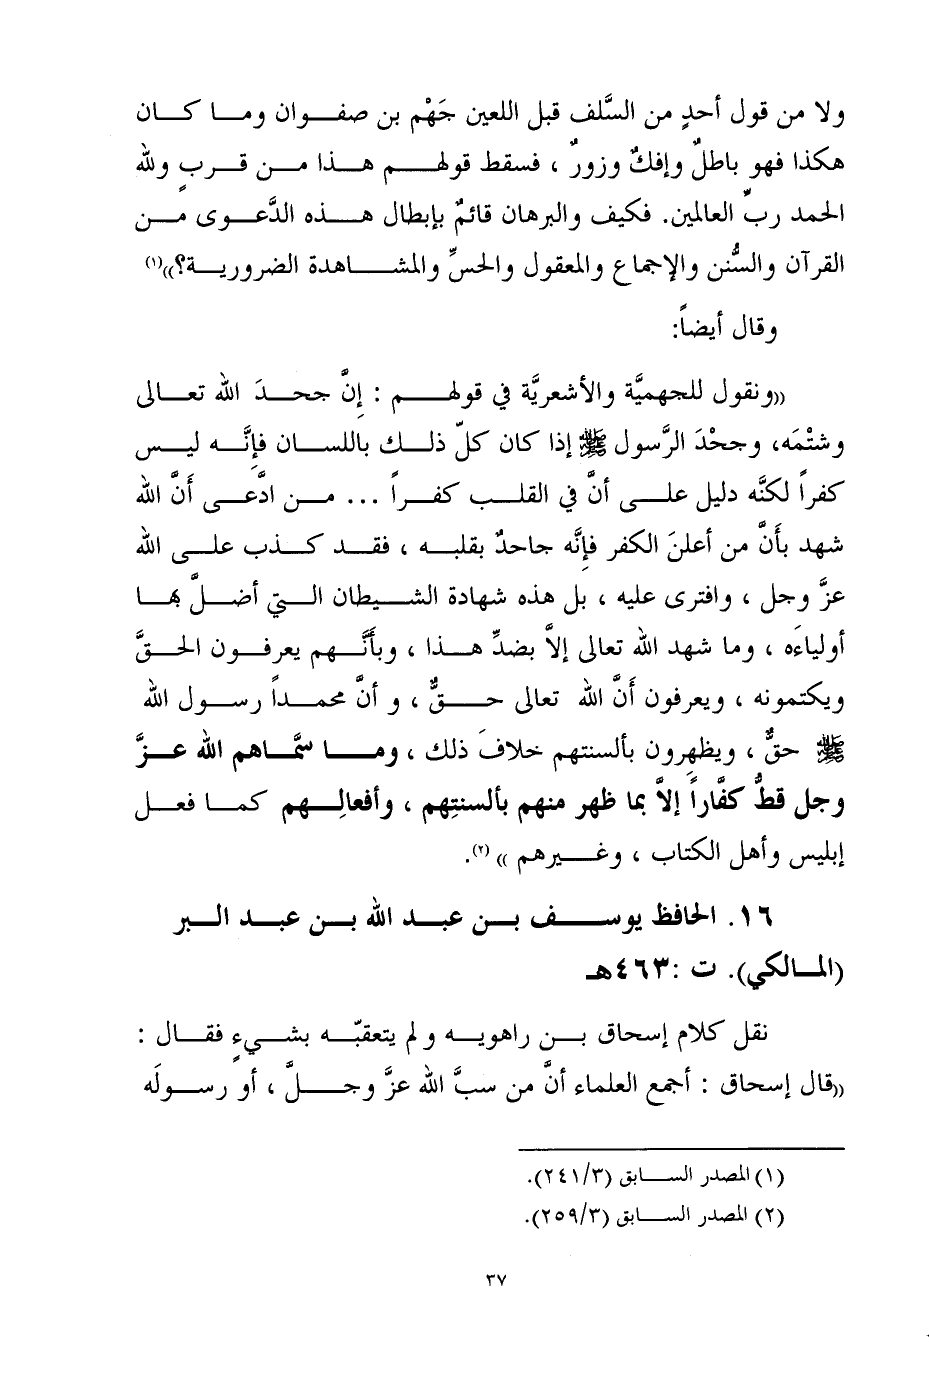 ولا من قول أحدٍ من السَّلف قبل اللعين جَهْم بن صفوان وما كان
هكذا فهو باطلٌ وإفكٌ وزورٌ ، فسقط قولهم هذا من قربٍ ولله
الحمد ربِّ العالمين. فكيف والبرهان قائمٌ بإبطال هذه الدَّعوى من
القرآن والسُّنن والإجماع والمعقول والحسِّ والمشاهدة الضرورية؟))(١)
وقال أيضاً:
((ونقول للجهميَّة والأشعريَّة في قولهم : إنَّ جحدَ الله تعالى
وشتْمَه، وجحْدَ الرَّسول ﷺ إذا كان كلّ ذلك باللسان فإنَّه ليس
كفراً لكنَّه دليل على أنَّ في القلب كفراً ... من ادَّعى أَنَّ الله
شهد بأَنَّ من أعلنَ الكفر فإنَّه جاحدٌ بقلبه ، فقد كذب على الله
عزَّ وجل ، وافترى عليه ، بل هذه شهادة الشيطان التي أضلَّ بها
أولياءَه ، وما شهد الله تعالى إلاَّ بضدِّ هذا ، وبأَنَّهم يعرفون الحقَّ
ويكتمونه ، ويعرفون أَنَّ الله تعالى حقٌّ ، و أنَّ محمداً رسول الله
ﷺ حقٌّ ، ويظهرون بألسنتهم خلافَ ذلك ، وما سمَّاهم الله عزَّ
وجل قطُّ كفَّاراً إلاَّ بما ظهر منهم بألسنتِهم ، وأفعالِهم كما فعل
إبليس وأهل الكتاب ، وغيرهم )) (٢).
١٦. الحافظ يوسف بن عبد الله بن عبد البر
(المالكي). ت :٤٦٣هـ
نقل كلام إسحاق بن راهويه و لم يتعقبّه بشيءٍ فقال :
((قال إسحاق : أجمع العلماء أنَّ من سبَّ الله عزَّ وجلَّ ، أو رسولَه
(١) المصدر السابق (٢٤١/٣).
(٢) المصدر السابق (٢٥٩/٣).
٣٧